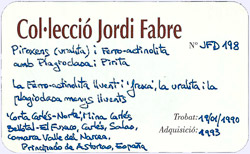 Col·lecció Jordi Fabre
Piroxens (uralita) i Ferro-actinolita Nº JFD 198
amb Plagioclasa i Pirita
La Ferro-actinolita lluent i fresca, la uralita i la
plagioclasa menys lluents
"Corta Carlés-Norte", Mina Carlés
Bellstal-El Furaco, Carlés, Salas, Trobat: 19/01/1990
Comarca Valle del Narcea, Adquisició: 1993
Principado de Asturias, España